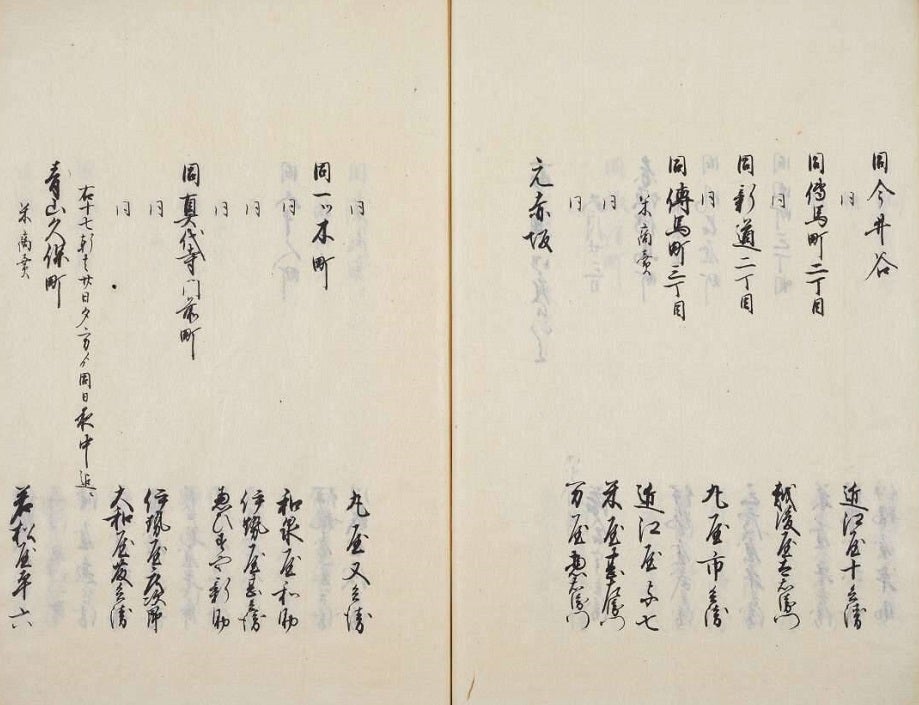 同今井谷
同 近江屋十兵衛
同傳馬町二丁目 越後屋
同新道二丁目
同 丸屋市兵衛
同傳馬町三丁目 近江屋与七
米商賣
同 米屋
同 万屋惣右衛門
元赤坂
同 丸屋又兵衛
同一ツ木町
同 和泉屋和助
同 伊勢屋
同 新助
同真代寺門前町
同 伊勢屋
同 大和屋茂兵衛
右十七軒者廿日夕方ゟ同日夜中迄、
青山久保町 若松屋平六
米商賣